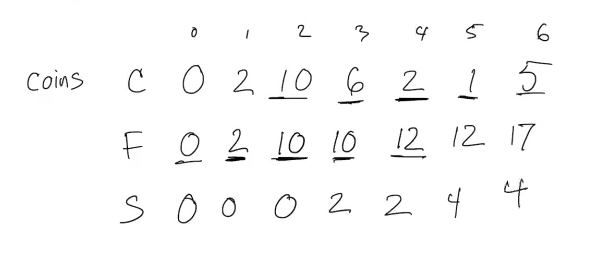 0 1 2 3 4 5 6
Coins C 0 2 10 6 2 1 5
F 0 2 10 10 12 12 17
S 0 0 0 2 2 4 4